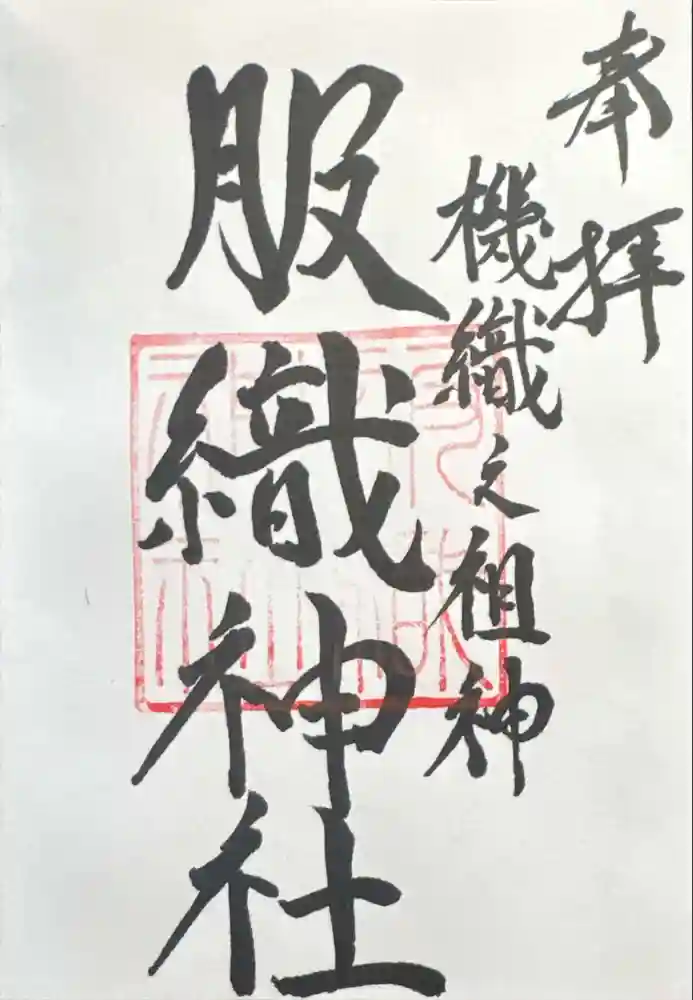 奉拝
機織之祖神
服織神社